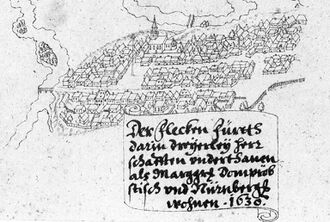 Der Flecken Fürth
darin dreyerley herr
schafften underthanen
als Marggrf Dompröb
stisch und Nürnbergs
wohnen · 1630